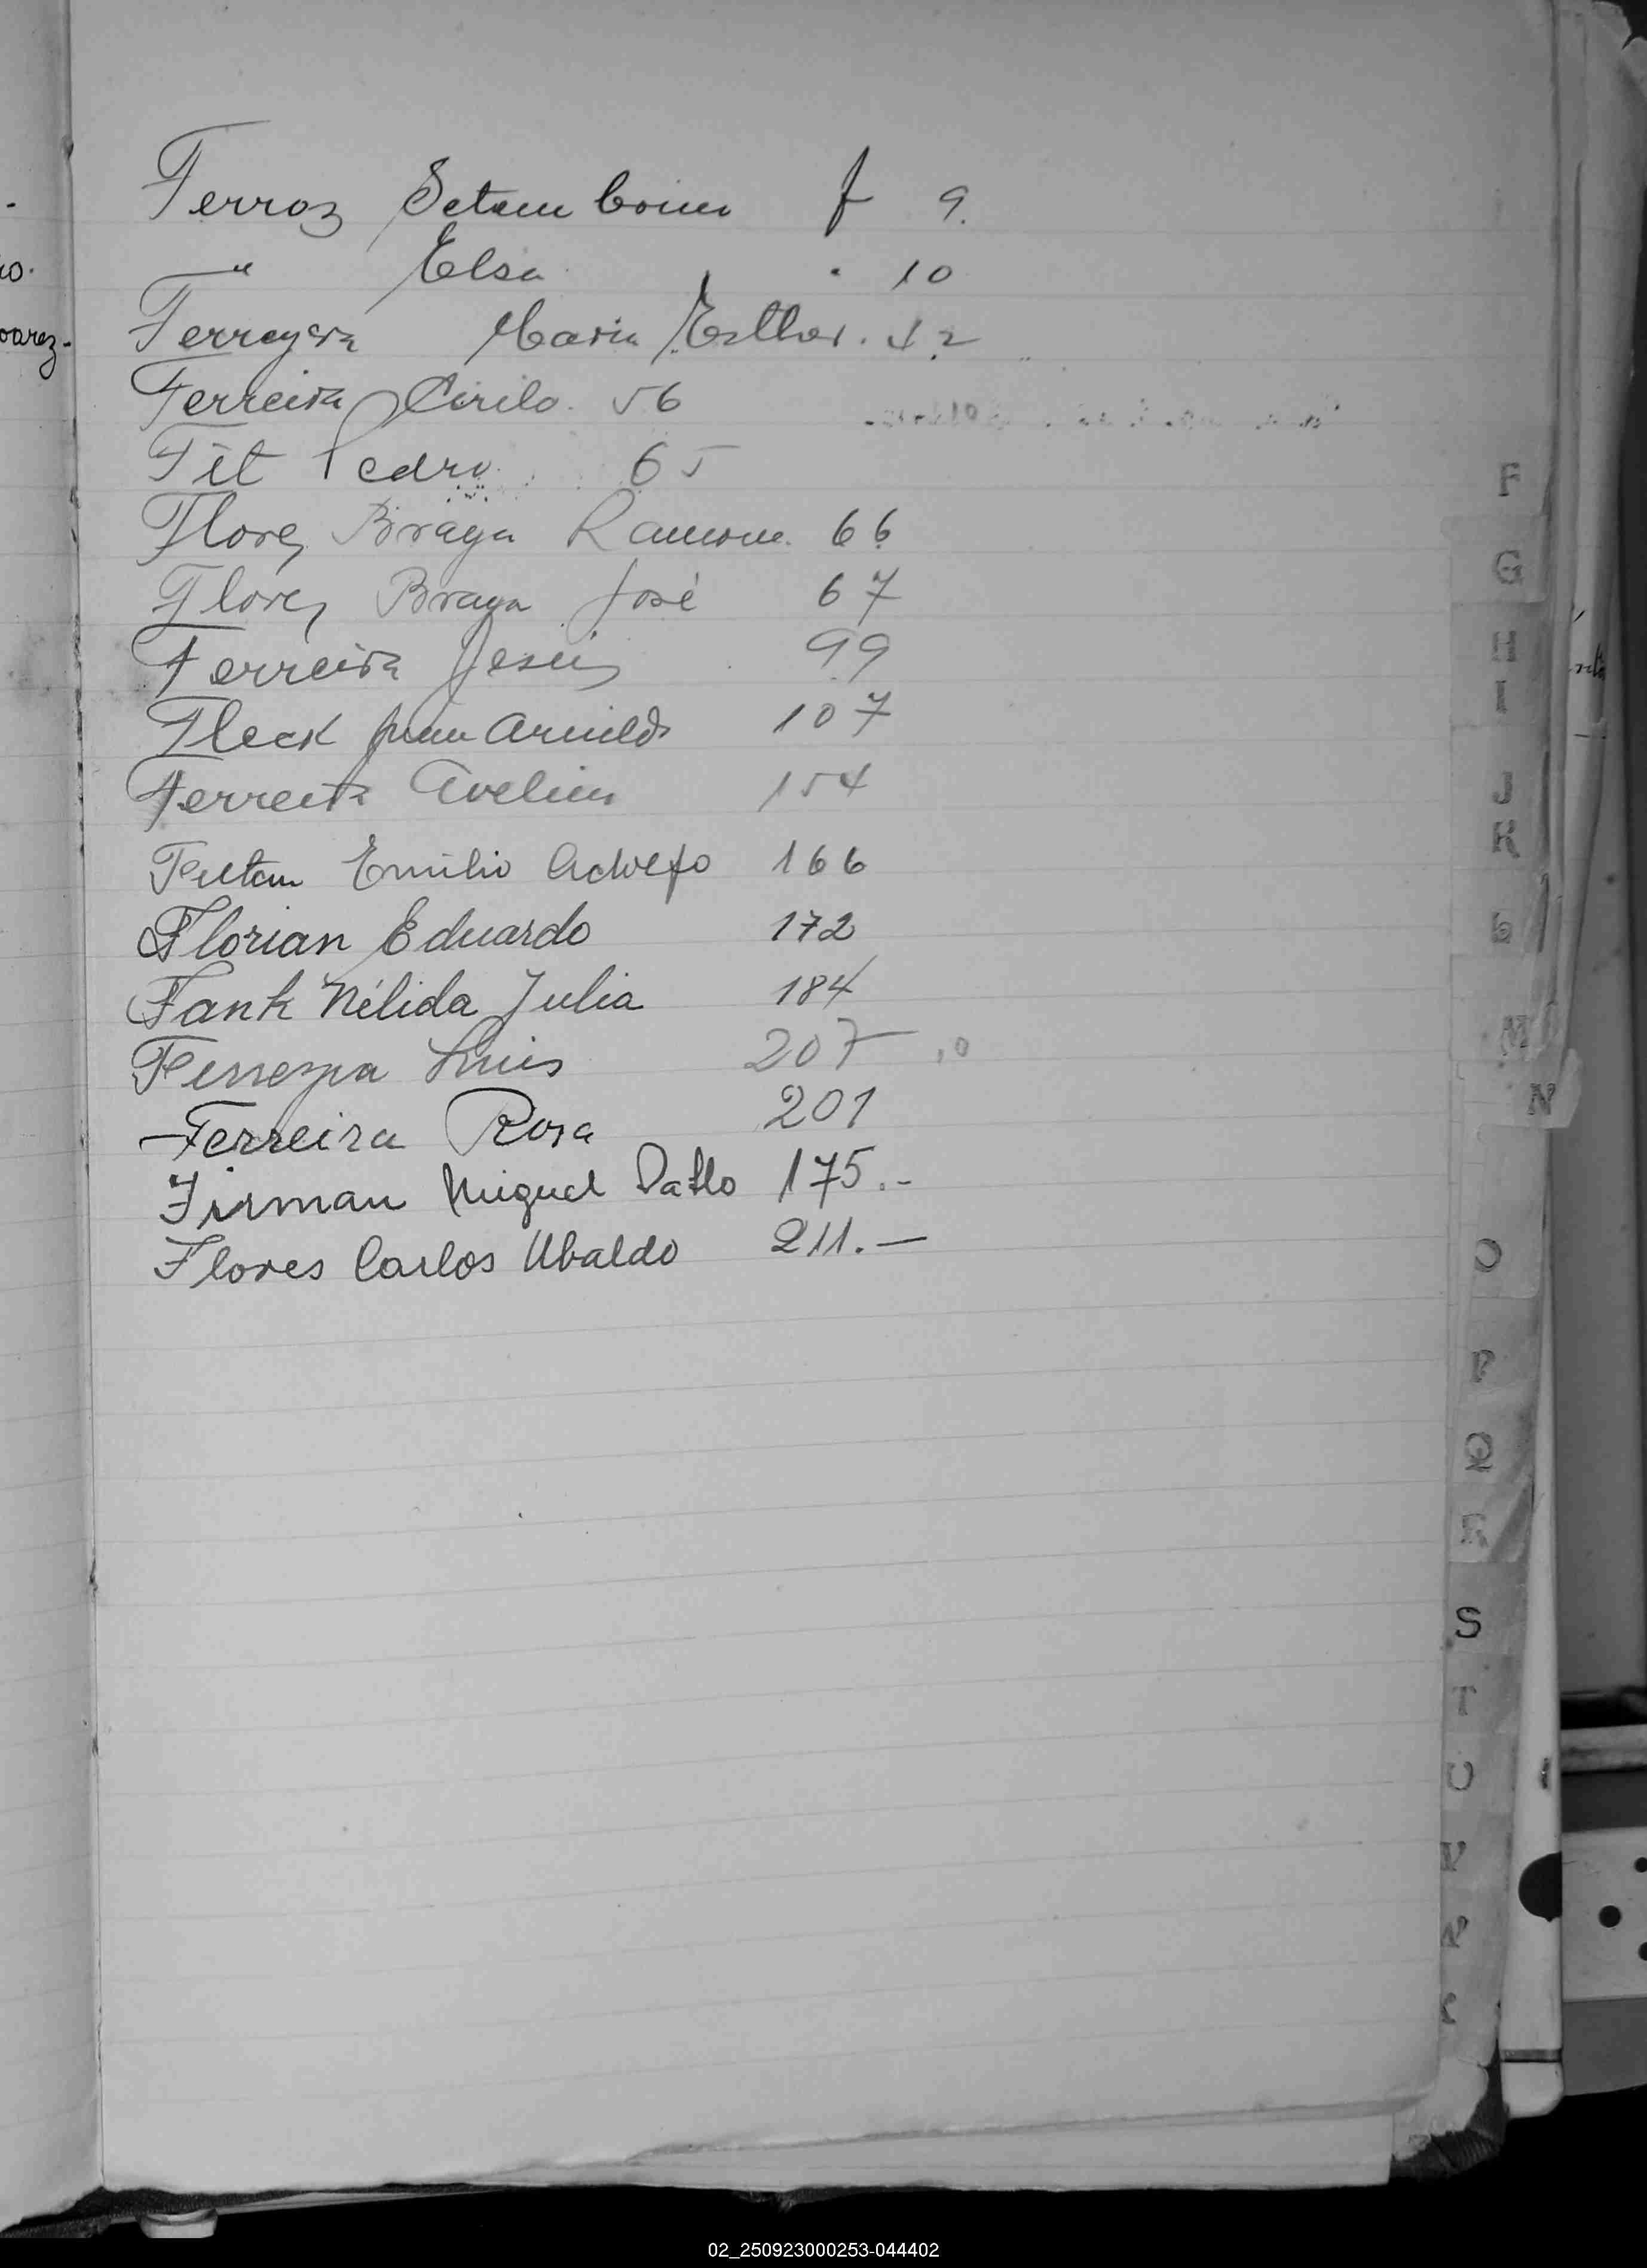 Ferroz Setembrino f 9.
" Elsa . 10
Ferreyra Maria Esther. 42
Ferreira Cirilo. 56
Fit Pedro. 65
Flores Braga Ramona. 66
Flores Braga José 67
Ferreira Jesús 99
Fleck Juan Arnildo 107
Ferreira Avelino 154
Emilio Adolfo 166
Florian Eduardo 172
Fank Nélida Julia 184
Ferreyra Luis 207
Ferreira Rosa 201
Firman Miguel Pablo 175.-
Flores Carlos Ubaldo 211.—
F
G
H
I
J
K
M
N
O
P
Q
R
S
T
U
V
02_250923000253-044402